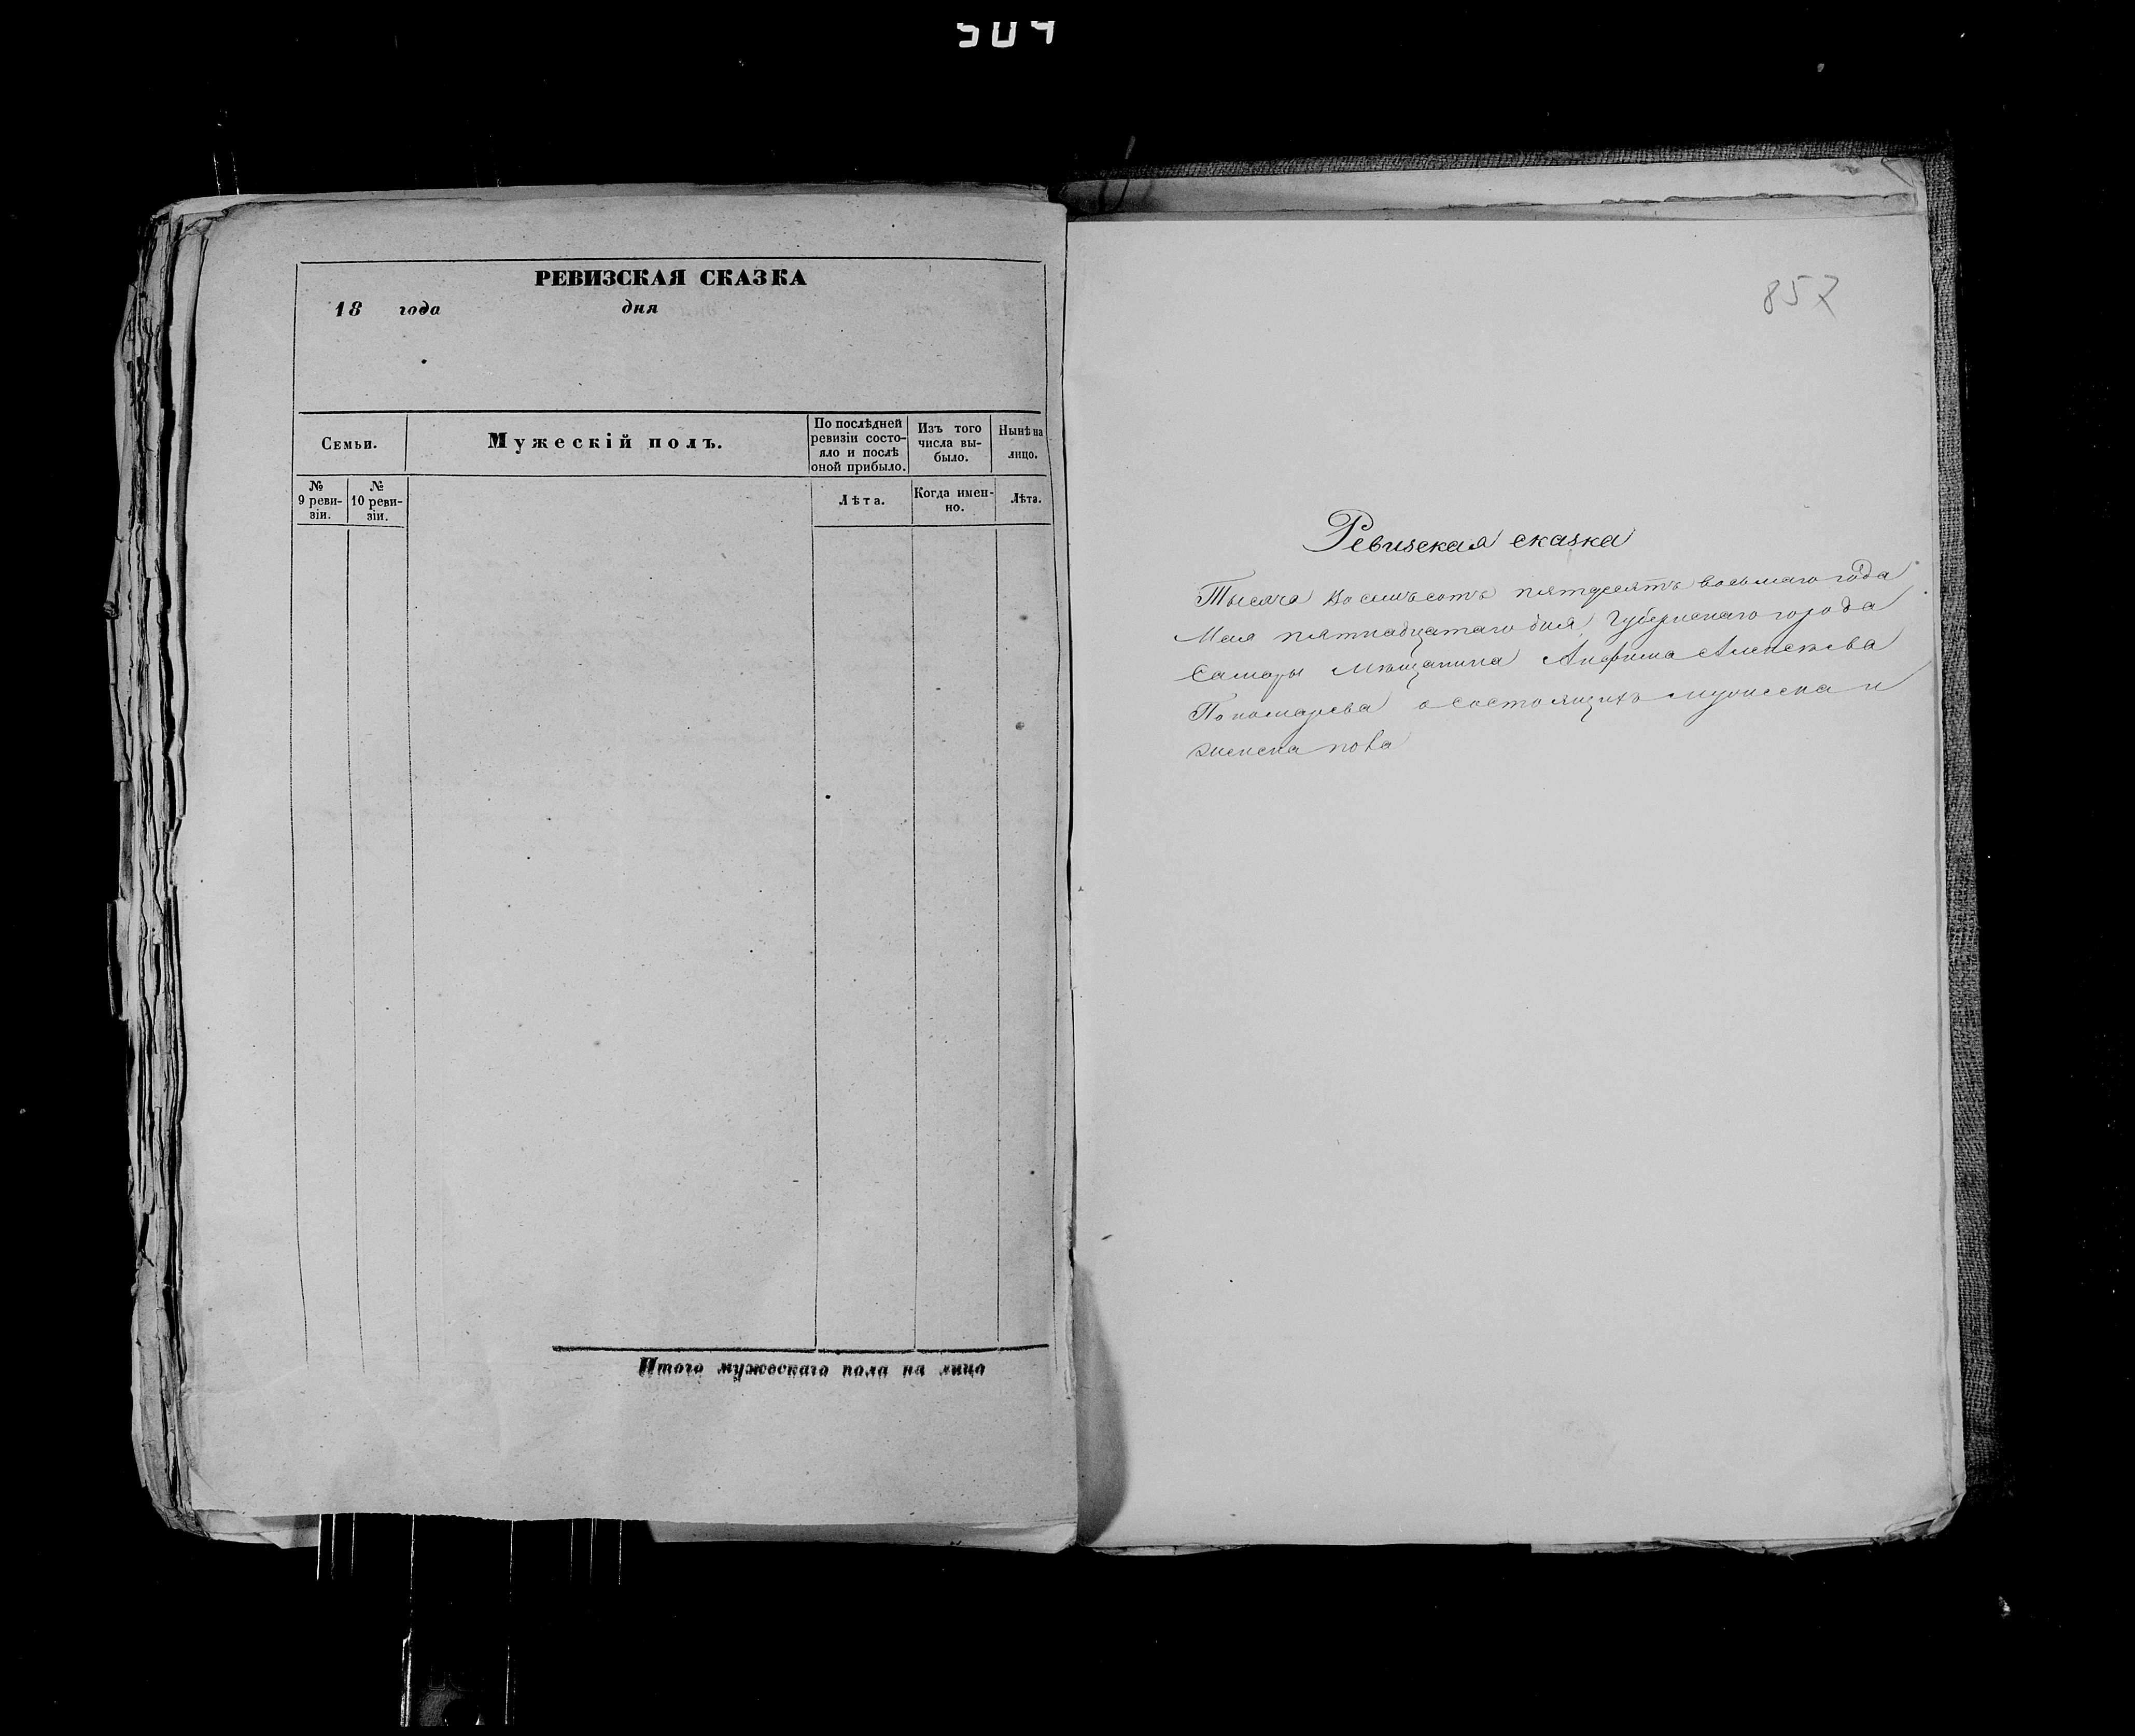 504
РЕВИЗСКАЯ СКАЗКА
18 года дня
Семьи.
Мужескій полъ.
По послѣдней
ревизіи состо-
яло и послѣ
оной прибыло.
Изъ того
числа вы-
было.
Нынѣ на
лицо.
№
9 реви-
зіи.
№
10 реви-
зіи.
Лѣта.
Когда имен-
но.
Лѣта.
Итого мужескаго пола на лицо
857
Ревизская сказка
Тысяча восемьсотъ пятдесятъ восьмаго года
Мая пятнадцатаго дня, Губернскаго города
Самары Мѣщанина Анфима Алексѣева
Пономарева о состоящихъ мужеска и
женска пола